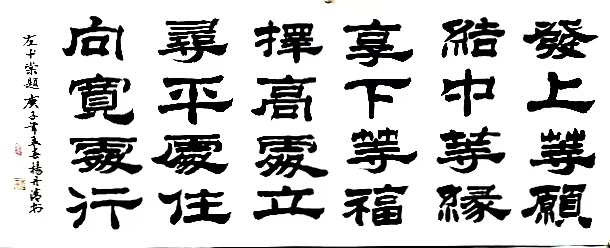 發上等願
結中等緣
享下等福
擇高處立
尋平處住
向寬處行
左宗棠題 庚子年 楊 書